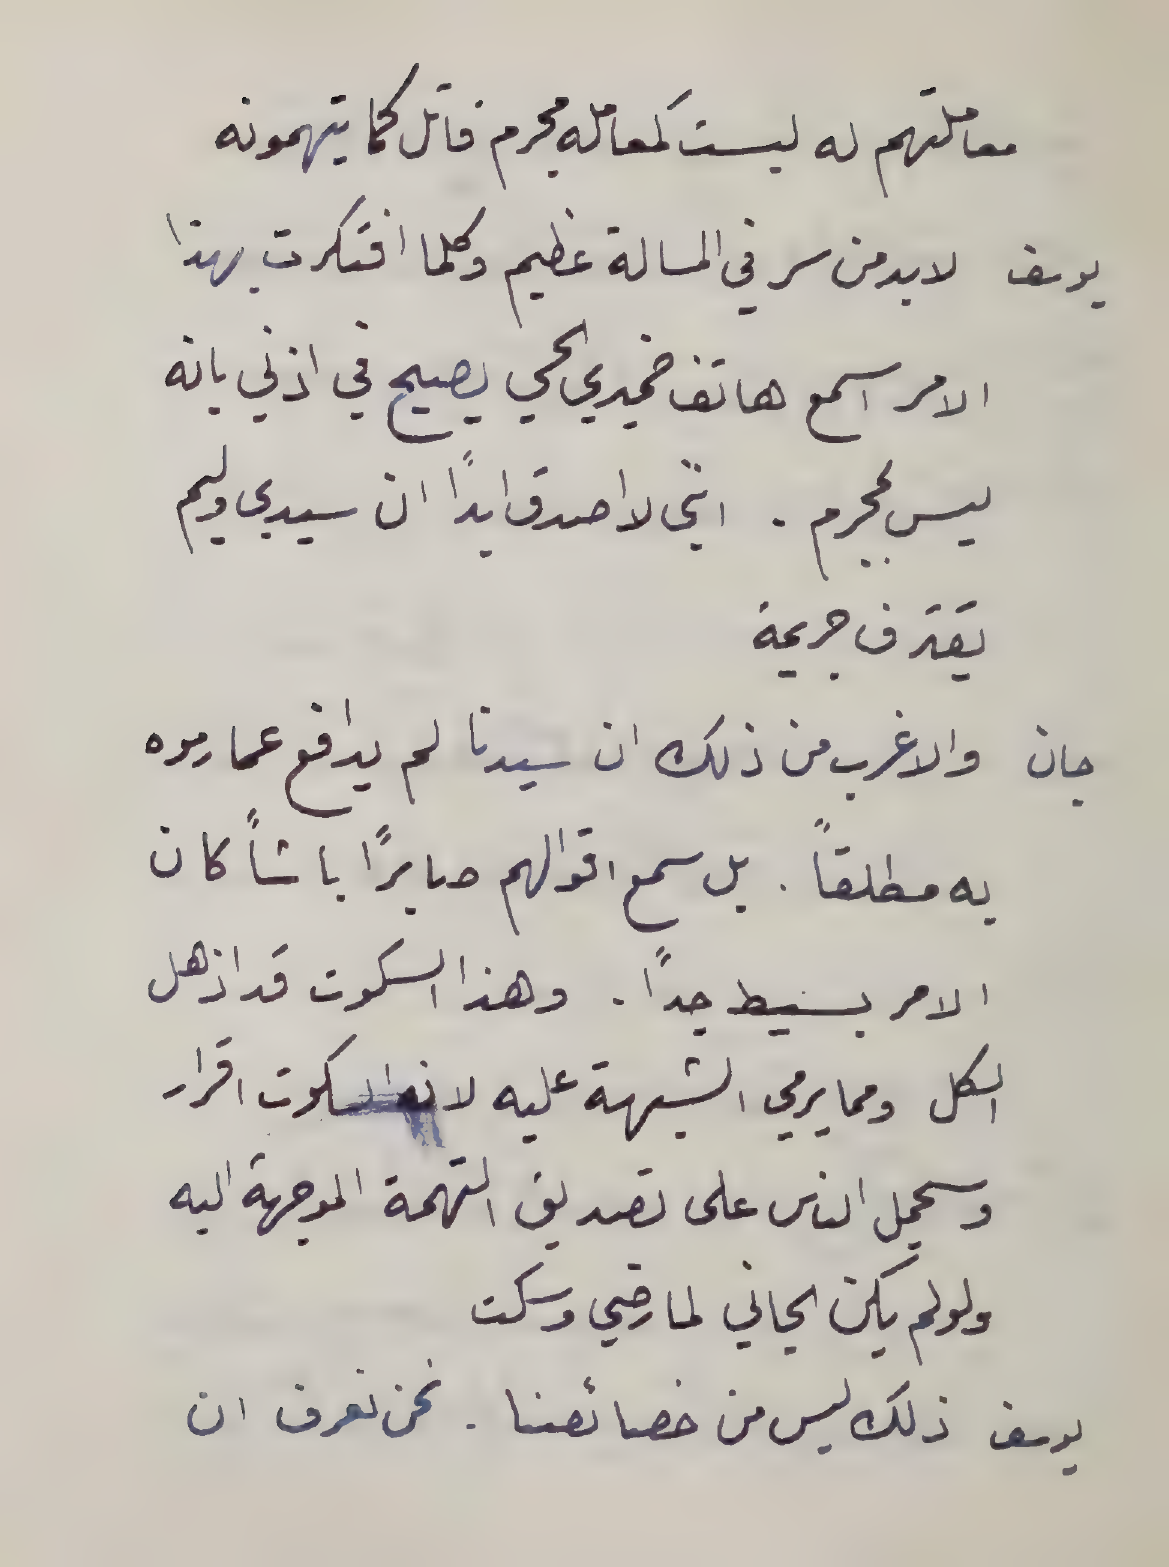 معاملتهم له ليست كمعامله مجرم قاتل كما يتهمونه
يوسف لا بد من سر في المسالة عظيم وكلما افتكرت بهذا
الامر اسمع هاتف ضميري الحي يصيح في اذني بانه
ليس بمجرم . انني لا اصدق ابداً ان سيدي وليم
يقترف جريمة
جان والاغرب من ذلك ان سيدنا لم يدافع عما رموه
به مطلقاً . بل سمع اقوالهم صابراً باشاً كان
الامر بسيط جداً . وهذا السكوت قد اذهل
الكل ومما يرمي الشبهة عليه لانه السكوت اقرار
وسيحمل الناس على تصديق التهمة الموجهة اليه
ولو لم يكن الجاني لما رضي وسكت
يوسف ذلك ليس من خصائصنا . نحن نعرف ان